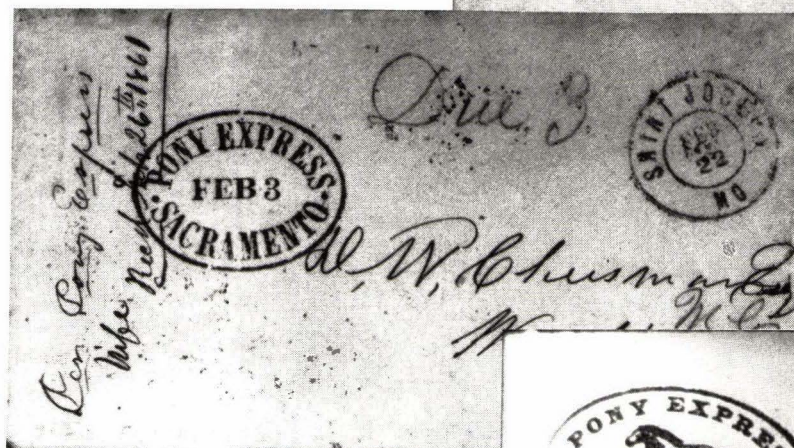 Per Pony Express
Wife Recd Feb 26th 1861
PONY EXPRESS
FEB 3
SACRAMENTO
Due 3
SAINT JOSEPH
FEB
MO
D. W. Cheesman
PONY EXPRESS